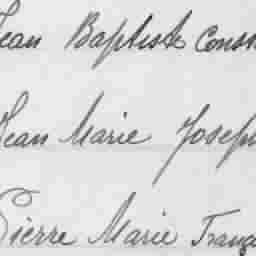 Jean Baptiste Const
Jean Marie Joseph
Pierre Marie Franç